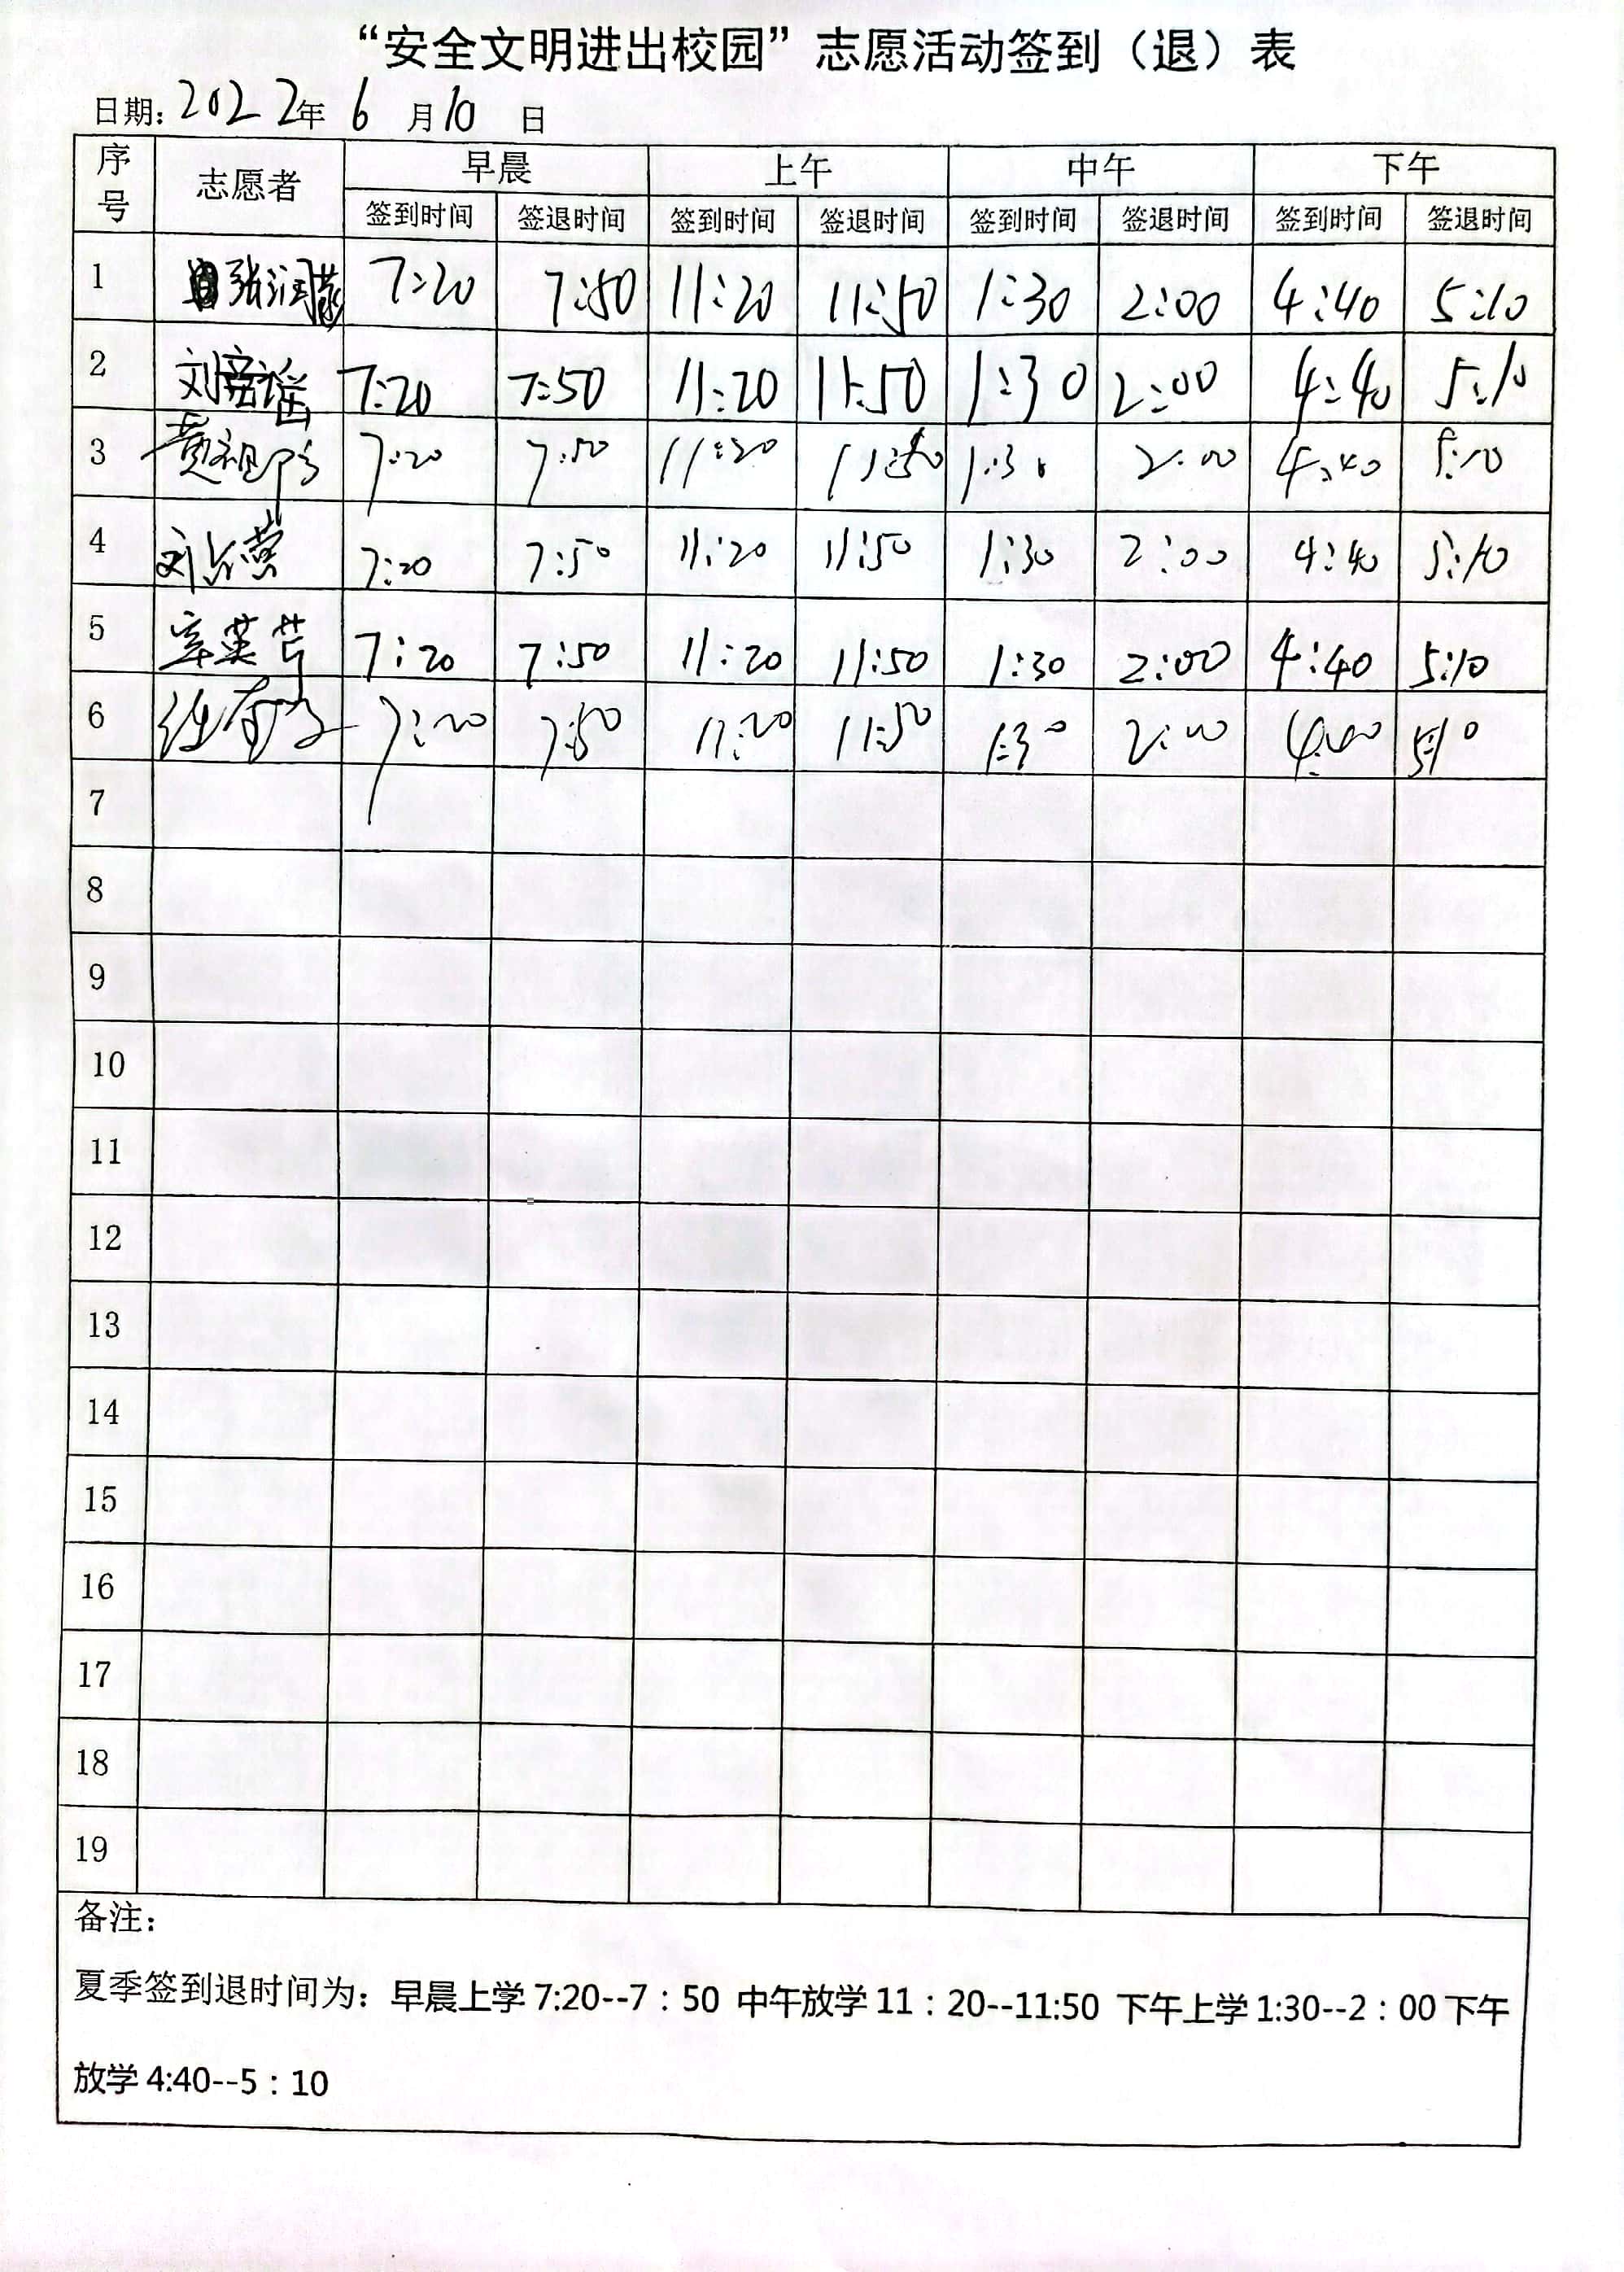 “安全文明进出校园”志愿活动签到（退）表
日期: 2022年 6 月 10 日
序号 志愿者 早晨 上午 中午 下午
签到时间 签退时间 签到时间 签退时间 签到时间 签退时间 签到时间 签退时间
1 张 7:20 7:50 11:20 11:50 1:30 2:00 4:40 5:10
2 刘 7:20 7:50 11:20 11:50 1:30 2:00 4:40 5:10
3 黄祖 7:20 7:50 11:20 11:50 1:30 2:00 4:40 5:10
4 刘 7:20 7:50 11:20 11:50 1:30 2:00 4:40 5:10
5 英芹 7:20 7:50 11:20 11:50 1:30 2:00 4:40 5:10
6 7:20 7:50 11:20 11:50 1:30 2:00 4:40 5:10
7
8
9
10
11
12
13
14
15
16
17
18
19
备注：
夏季签到退时间为：早晨上学 7:20--7：50 中午放学 11：20--11:50 下午上学 1:30--2：00 下午
放学 4:40--5：10